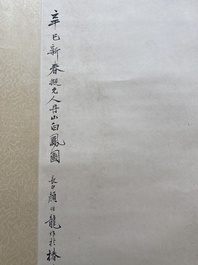 辛巳新春擬元人丹山白鳳圖 長白顏伯龍作於椿